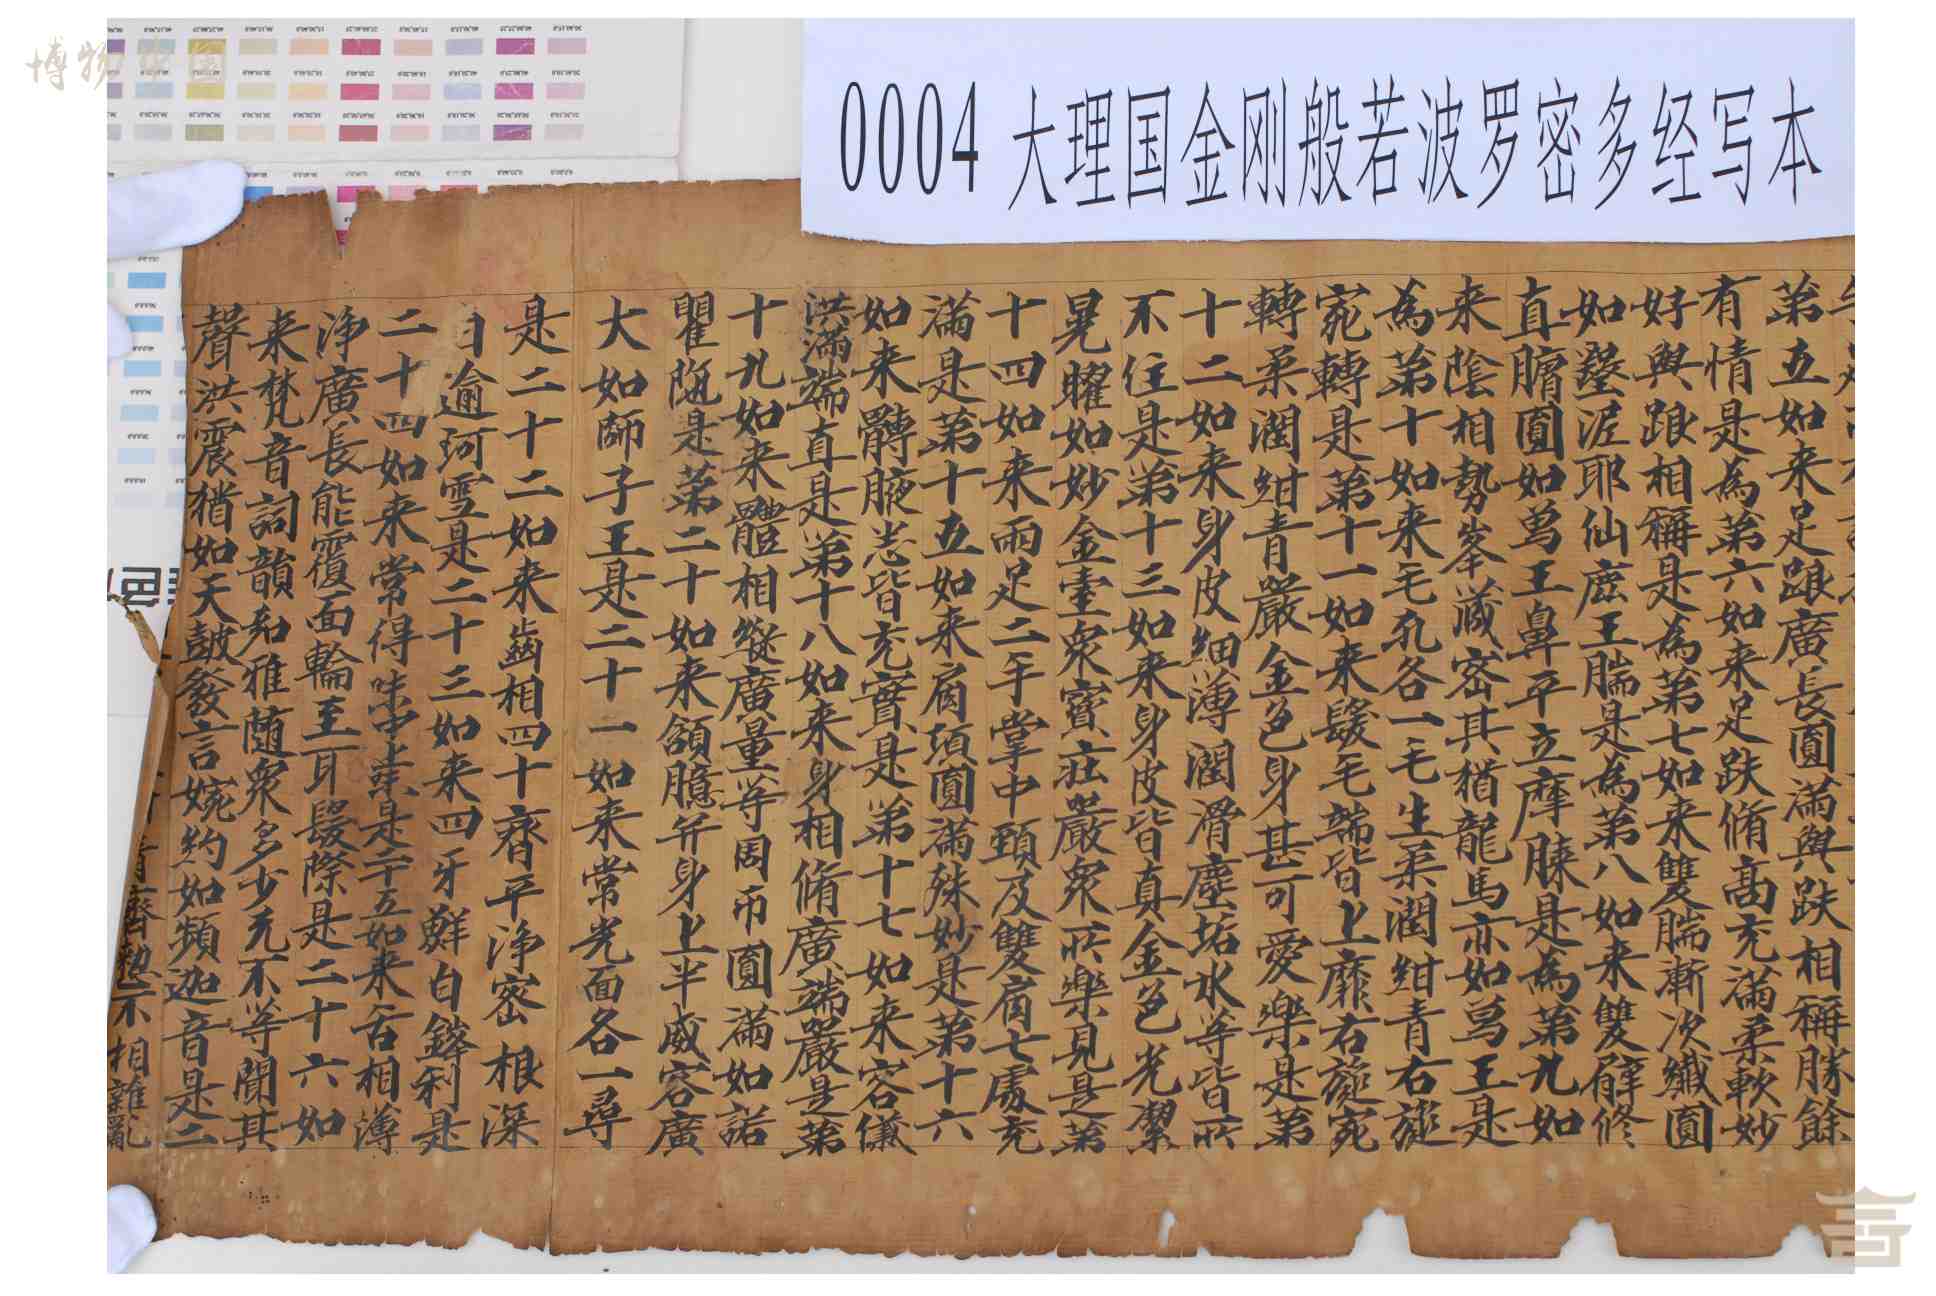 博物中国
0004 大理国金刚般若波罗密多经写本
苐五如来足跟廣長圓滿與趺相稱勝餘
有情是為苐六如来足趺脩高充滿柔軟妙
好與跟相稱是為苐七如来雙腨漸次纖圓
如瑿泥耶仙鹿王腨是為苐八如来雙臂修
直𦟛圓如象王鼻平立摩膝是為苐九如
来陰相勢峯藏密其猶龍馬亦如象王是
為苐十如来毛孔各一毛生柔潤紺青右旋
宛轉是苐十一如来髮毛端皆上靡右旋宛
轉柔潤紺青嚴金色身甚可愛樂是苐
十二如来身皮細薄潤滑塵垢水等皆所
不住是苐十三如来身皮皆真金色光潔
晃曜如妙金臺衆寶莊嚴衆所樂見是苐
十四如来兩足二手掌中頸及雙肩七處充
滿是苐十五如来肩項圓滿殊妙是苐十六
如来髆腋悉皆充實是苐十七如来容儀
洪滿端直是苐十八如来身相脩廣端嚴是苐
十九如来體相縱廣量等周帀圓滿如諾
瞿陁是苐二十如来頷臆并身上半威容廣
大如師子王是二十一如来常光面各一尋
是二十二如来齒相四十齊平淨密根深
白逾珂雪是二十三如来四牙鮮白鋒利是
二十四如来常得味中是二十五如来舌相薄
淨廣長能覆面輪至耳髮際是二十六如
来梵音詞韻和雅随衆多少无不等聞其
聲洪震猶如天鼓發言婉約如頻迦音是二
青齊整不相雜亂